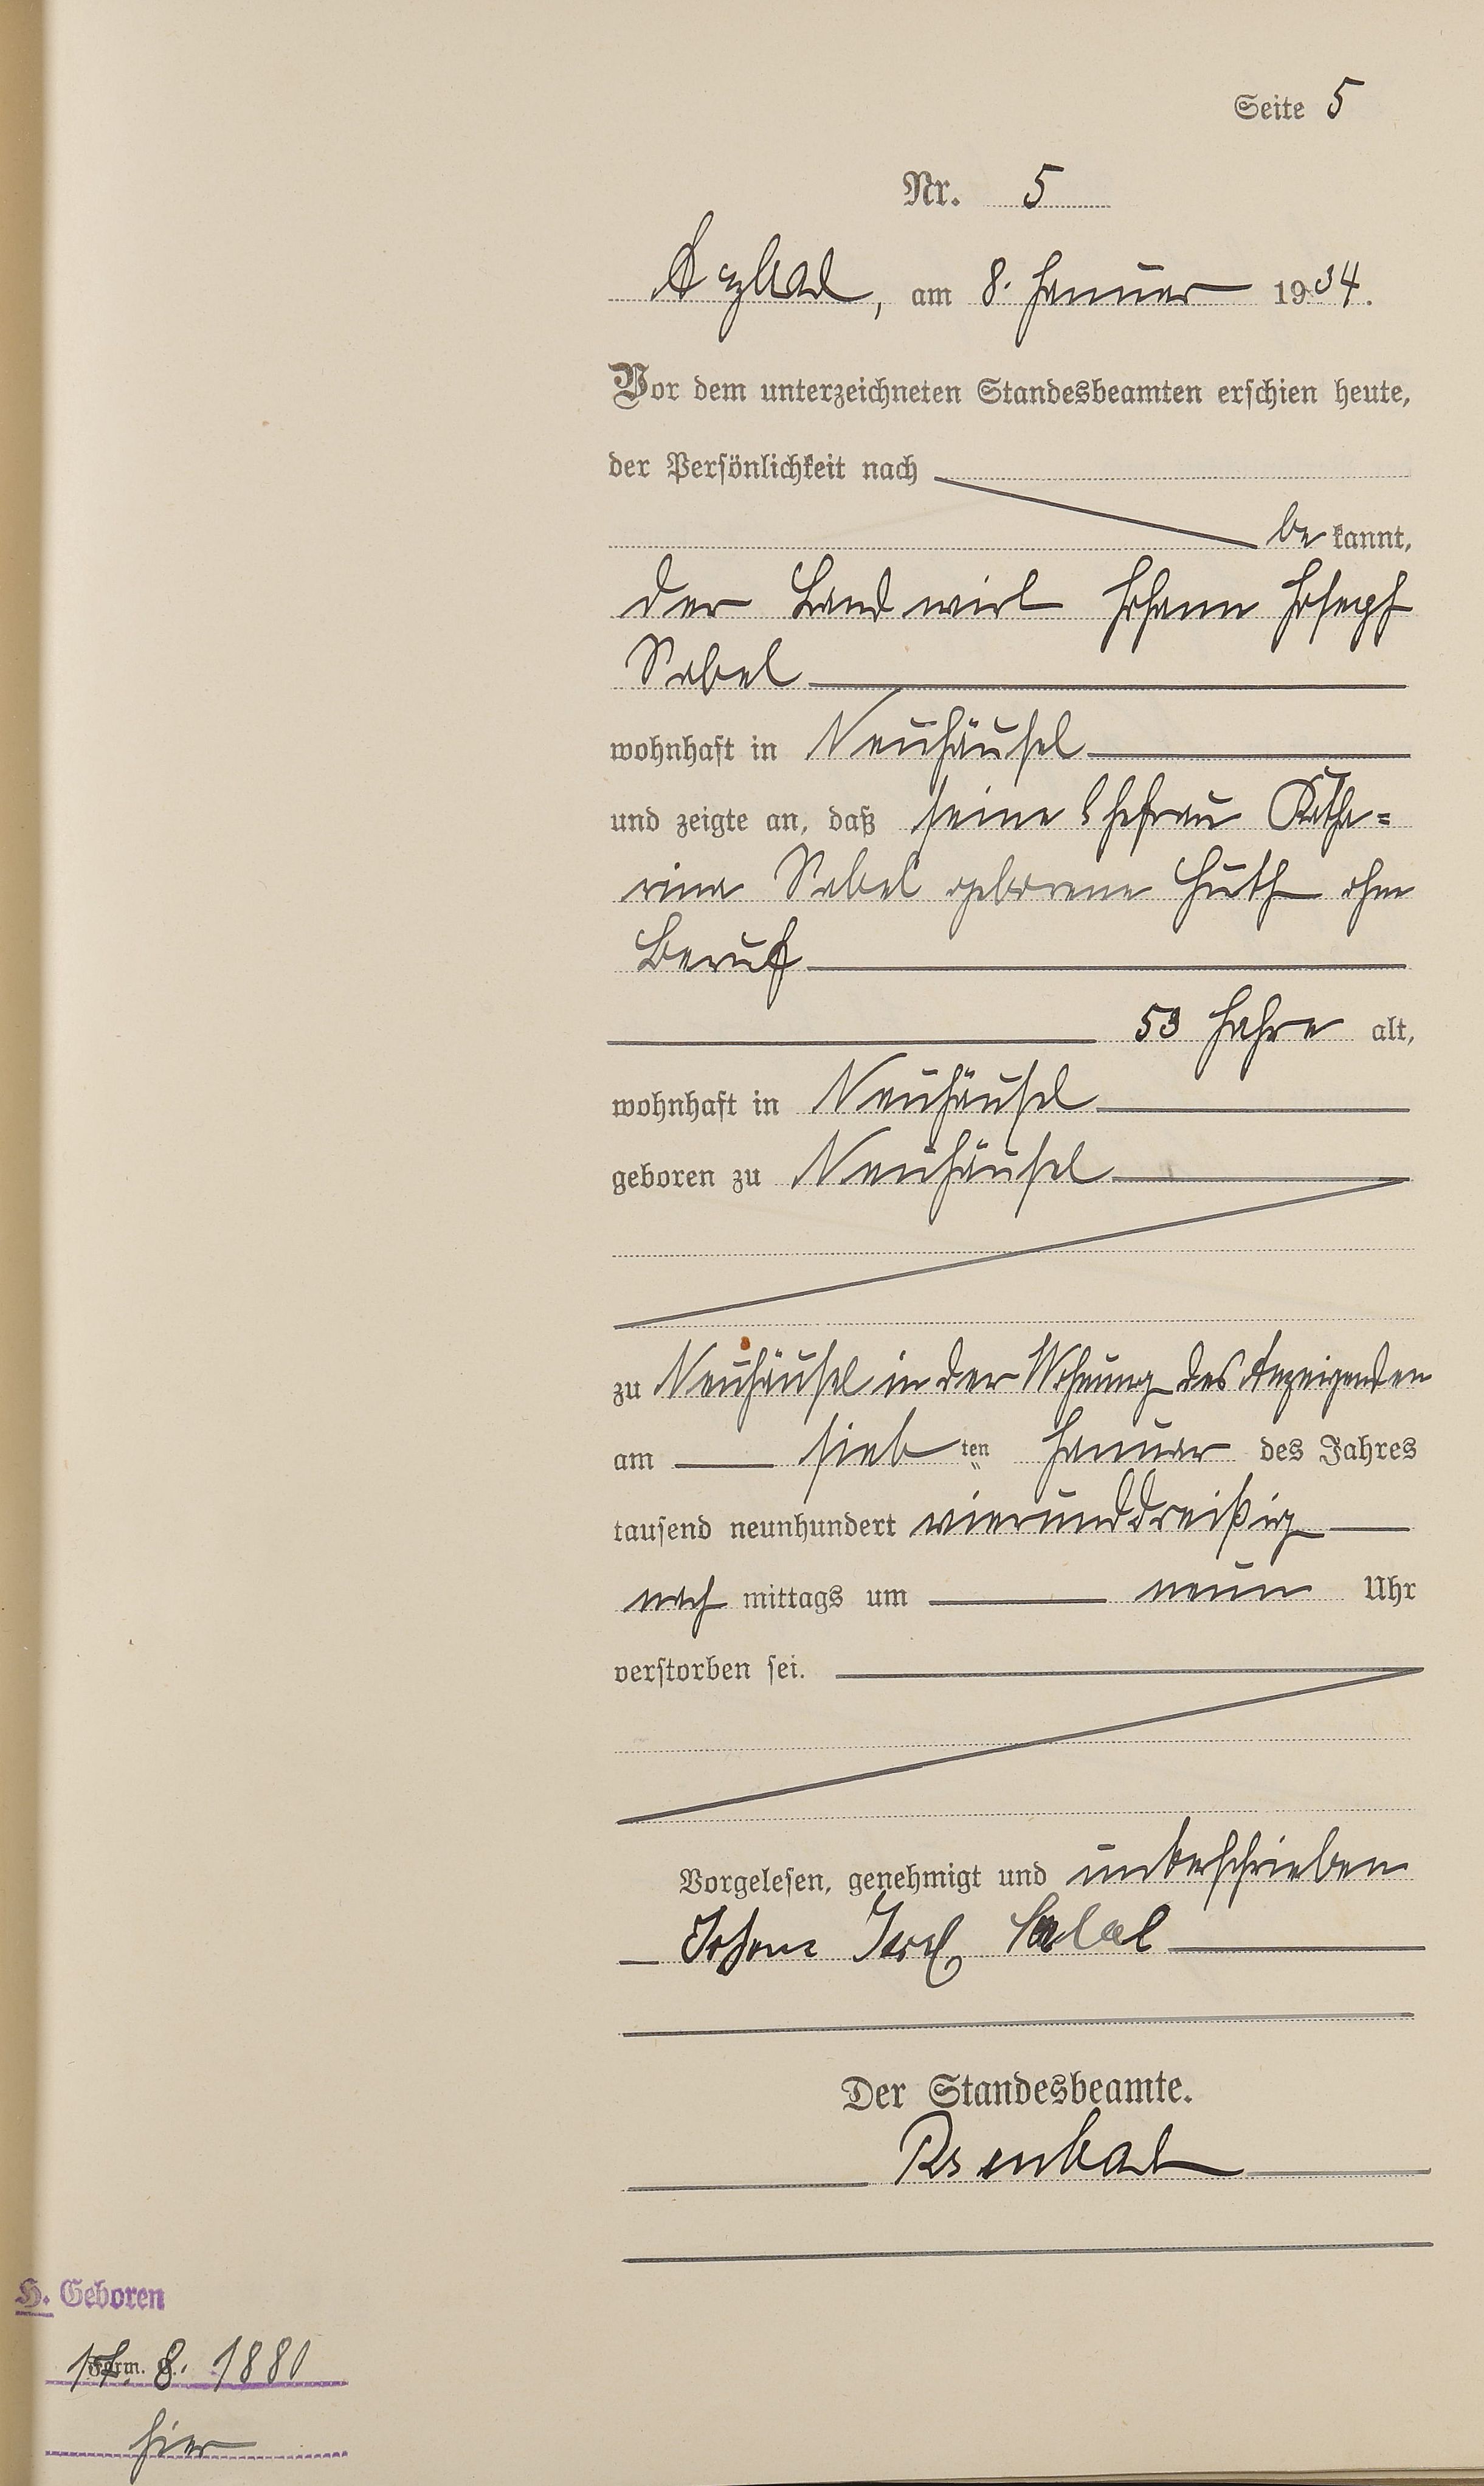 Seite 5
Nr. 5
Arzbach, am 8. Januar 1934.
Vor dem unterzeichneten Standesbeamten erschien heute,
der Persönlichkeit nach
be kannt,
der Landwirt Johann Joseph
Sabel
wohnhaft in Neuhäusel
und zeigte an, daß seine Ehefrau Katha=
rina Sabel geborene Huth ohne
Beruf
53 Jahre alt,
wohnhaft in Neuhäusel
geboren zu Neuhäusel
zu Neuhäusel in der Wohnung des Anzeigenden
am sieb ten Januar des Jahres
tausend neunhundert vierunddreißig
nach mittags um neun Uhr
verstorben sei.
Vorgelesen, genehmigt und unterschrieben
Johann Josef Sabel
Der Standesbeamte.
Rosenbach
H. Geboren
17. 8. 1880
hier